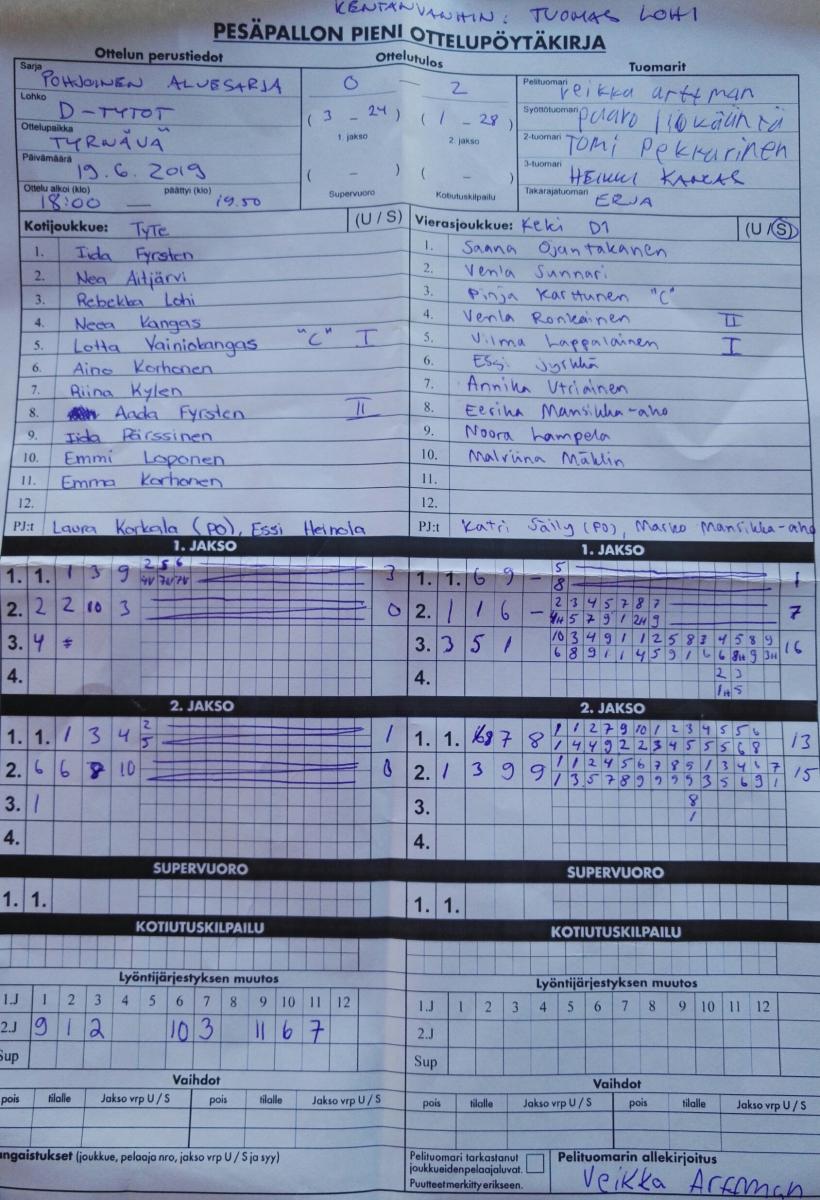 KENTÄNVANHIN: TUOMAS LOHI
PESÄPALLON PIENI OTTELUPÖYTÄKIRJA
Ottelun perustiedot
Sarja POHJOINEN ALUESARJA
Lohko D-TYTÖT
Ottelupaikka TYRNÄVÄ
Päivämäärä 19.6.2019
Ottelu alkoi (klo) päättyi (klo)
18:00 — 19.50
Ottelutulos
0 — 2
(3 - 24) (1 - 28)
1. jakso 2. jakso
( - ) ( - )
Supervuoro Kotiutuskilpailu
Tuomarit
Pelituomari Veikka Arttman
Syöttötuomari
2-tuomari Tomi Pekkarinen
3-tuomari HEIKKI KANGAS
Takarajatuomari ERJA
Kotijoukkue: TyTe (U / S)
1. Iida Fyrsten
2. Nea Aitjärvi
3. Rebekka Lohi
4. Neea Kangas
5. Lotta Vainiokangas "C" I
6. Aino Korhonen
7. Riina Kylen
8. Aada Fyrsten II
9. Iida Pärssinen
10. Emmi Loponen
11. Emma Korhonen
12.
PJ:t Laura Korkala (PO), Essi Heinola
Vierasjoukkue: Keki D1 (U / S)
1. Saana Ojantakanen
2. Venla Sunnari
3. Pinja Karttunen "C"
4. Venla Ronkainen II
5. Vilma Lappalainen I
6. Essi Jyrkkä
7. Annika Utriainen
8. Eerika Mansikka-aho
9. Noora Lampela
10. Malviina Mäklin
11.
12.
PJ:t Katri Säily (PO), Marko Mansikka-aho
1. JAKSO
1. 1. 1 3 9 2 5 6 3
4V 7V 7V
2. 2 2 10 3 0
3. 4
4.
1. JAKSO
1. 1. 6 9 - 5 1
8
2. 1 1 6 - 2 3 4 5 7 8 7 7
4H 5 7 9 1 2H 9
3. 3 5 1 10 3 4 9 1 1 2 5 8 3 4 5 8 9 16
6 8 9 1 1 4 5 9 1 6 6 8H 9 3H
4. 2 3
1H 5
2. JAKSO
1. 1. 1 3 4 2 1
5
2. 6 6 8 10 0
3. 1
4.
2. JAKSO
1. 1. 7 8 1 1 2 7 9 10 1 2 3 4 5 5 6 13
1 4 4 9 2 2 3 4 5 5 5 6 8
2. 1 3 9 9 1 1 2 4 5 6 7 8 9 1 3 4 6 7 15
1 3 5 7 8 9 9 9 9 3 5 6 9 1
3. 8
1
4.
SUPERVUORO
1. 1.
SUPERVUORO
1. 1.
KOTIUTUSKILPAILU
KOTIUTUSKILPAILU
Lyöntijärjestyksen muutos
1.J 1 2 3 4 5 6 7 8 9 10 11 12
2.J 9 1 2 10 3 11 6 7
Sup
Lyöntijärjestyksen muutos
1.J 1 2 3 4 5 6 7 8 9 10 11 12
2.J
Sup
Vaihdot
pois tilalle Jakso vrp U / S pois tilalle Jakso vrp U / S
Vaihdot
pois tilalle Jakso vrp U / S pois tilalle Jakso vrp U / S
ngaistukset (joukkue, pelaaja nro, jakso vrp U / S ja syy)
Pelituomari tarkastanut
joukkueidenpelaajaluvat.
Puutteet merkitty erikseen.
Pelituomarin allekirjoitus
Veikka Arttman